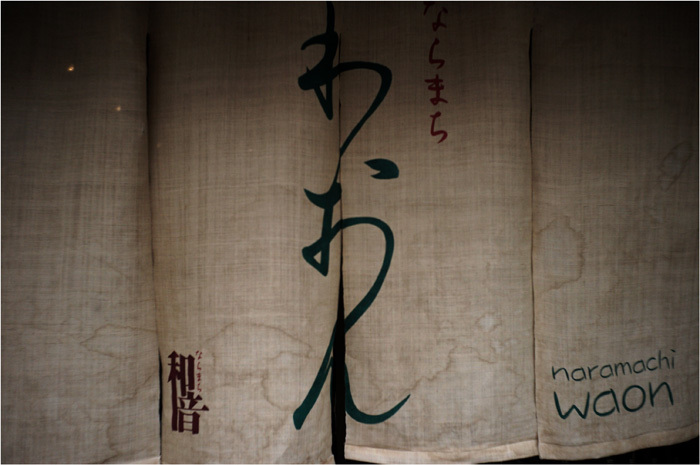 ならまち
わおん
ならまち
和音
naramachi
waon